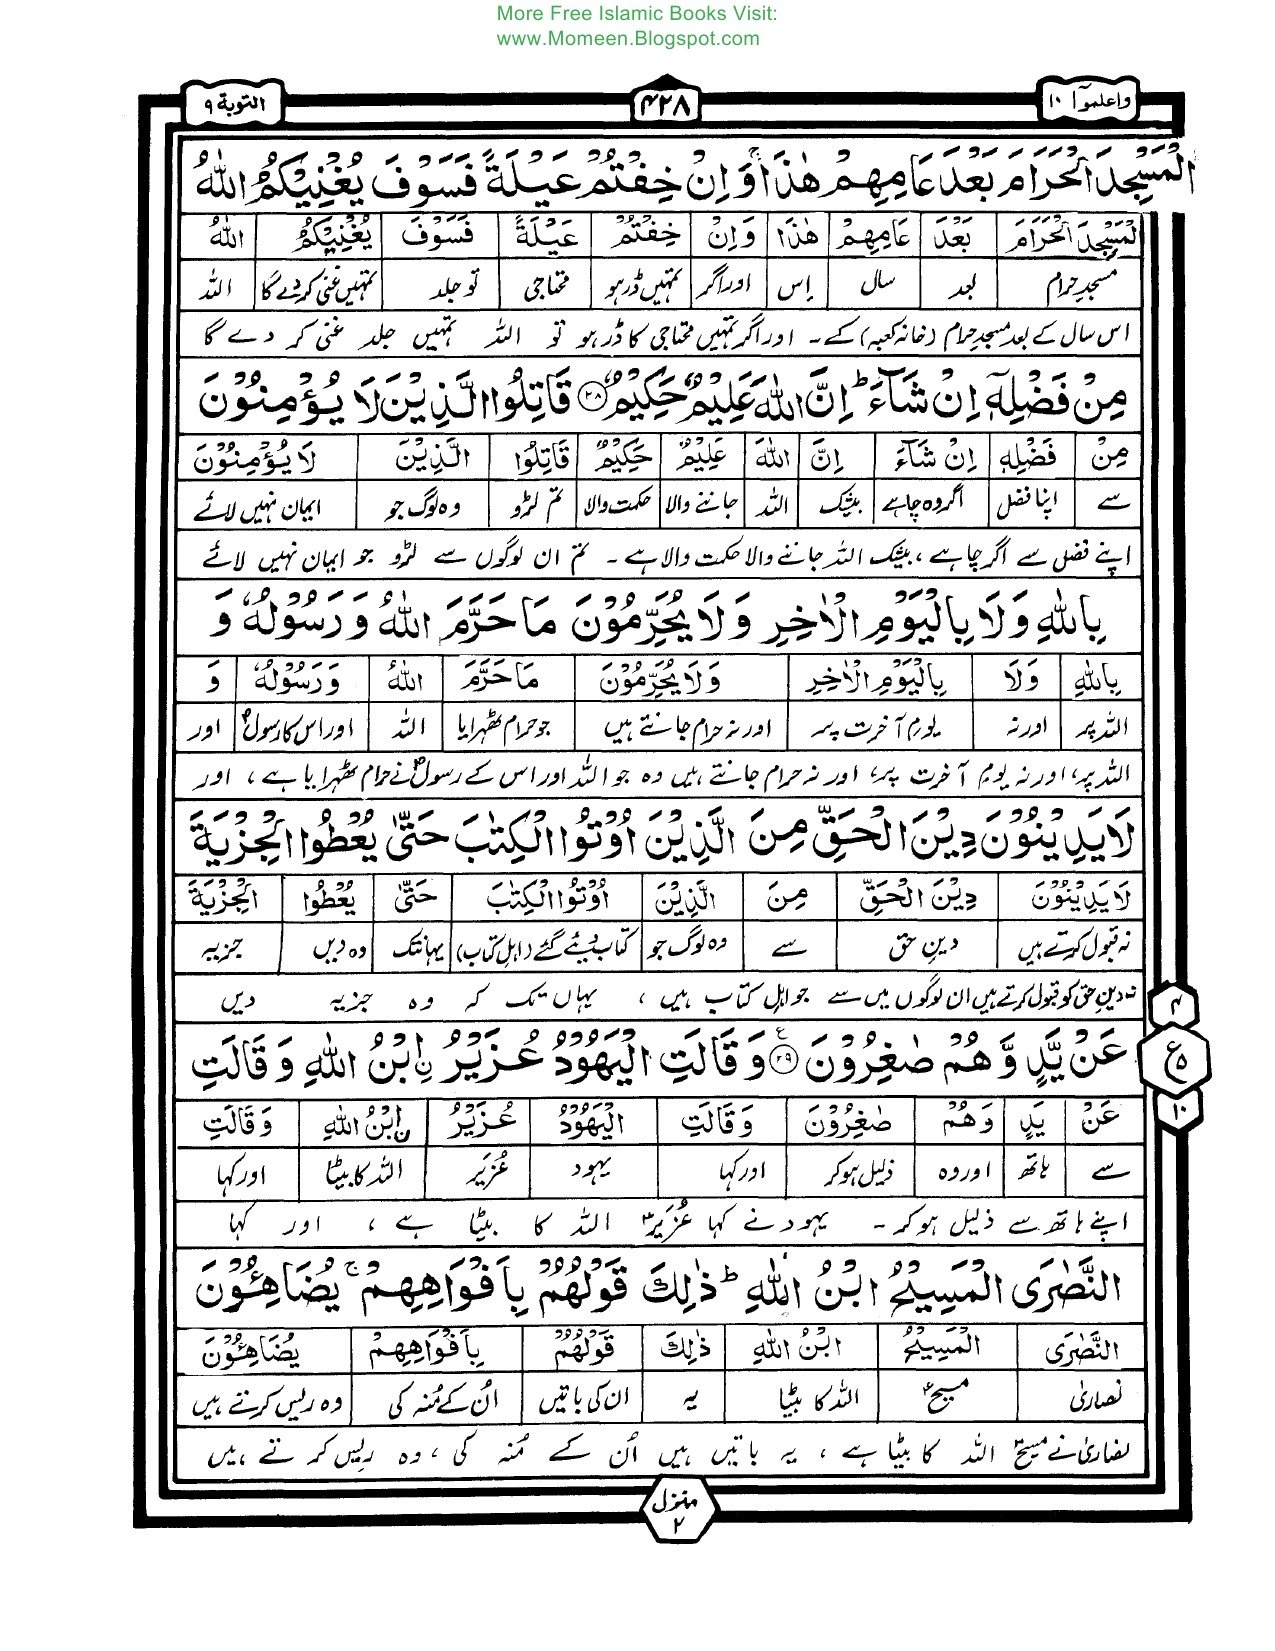 More Free Islamic Books Visit:
www.Momeen.Blogspot.com
واعلموٓا ۱۰ ۴۲۸ التوبة ۹
الْمَسْجِدَ الْحَرَامَ بَعْدَ عَامِهِمْ هٰذَا ۚ وَ اِنْ خِفْتُمْ عَيْلَةً فَسَوْفَ يُغْنِيْكُمُ اللّٰهُ
الْمَسْجِدَ الْحَرَامَ بَعْدَ عَامِهِمْ هٰذَا وَاِنْ خِفْتُمْ عَيْلَةً فَسَوْفَ يُغْنِيْكُمُ اللّٰهُ
مسجدِ حرام بعد سال اِس اور اگر تمہیں ڈر ہو محتاجی تو جلد تمہیں غنی کر دے گا اللہ
اس سال کے بعد مسجدِ حرام (خانہ کعبہ) کے۔ اور اگر تمہیں محتاجی کا ڈر ہو تو اللہ تمہیں جلد غنی کر دے گا
مِنْ فَضْلِهٖٓ اِنْ شَآءَ ؕ اِنَّ اللّٰهَ عَلِيْمٌ حَكِيْمٌ ﴿۲۸﴾ قَاتِلُوا الَّذِيْنَ لَا يُؤْمِنُوْنَ
مِنْ فَضْلِهٖٓ اِنْ شَآءَ اِنَّ اللّٰهَ عَلِيْمٌ حَكِيْمٌ قَاتِلُوا الَّذِيْنَ لَا يُؤْمِنُوْنَ
سے اپنا فضل اگر وہ چاہے بیشک اللہ جاننے والا حکمت والا تم لڑو وہ لوگ جو ایمان نہیں لائے
اپنے فضل سے اگر چاہے، بیشک اللہ جاننے والا حکمت والا ہے۔ تم ان لوگوں سے لڑو جو ایمان نہیں لائے
بِاللّٰهِ وَلَا بِالْيَوْمِ الْاٰخِرِ وَلَا يُحَرِّمُوْنَ مَا حَرَّمَ اللّٰهُ وَ رَسُوْلُهٗ وَ
بِاللّٰهِ وَلَا بِالْيَوْمِ الْاٰخِرِ وَلَا يُحَرِّمُوْنَ مَا حَرَّمَ اللّٰهُ وَ رَسُوْلُهٗ وَ
اللہ پر اور نہ یومِ آخرت پر اور نہ حرام جانتے ہیں جو حرام ٹھہرایا اللہ اور اس کا رسولؐ اور
اللہ پر، اور نہ یومِ آخرت پر، اور نہ حرام جانتے ہیں وہ جو اللہ اور اس کے رسولؐ نے حرام ٹھہرایا ہے، اور
لَا يَدِيْنُوْنَ دِيْنَ الْحَقِّ مِنَ الَّذِيْنَ اُوْتُوا الْكِتٰبَ حَتّٰى يُعْطُوا الْجِزْيَةَ
لَا يَدِيْنُوْنَ دِيْنَ الْحَقِّ مِنَ الَّذِيْنَ اُوْتُوا الْكِتٰبَ حَتّٰى يُعْطُوا الْجِزْيَةَ
نہ قبول کرتے ہیں دینِ حق سے وہ لوگ جو کتاب دیئے گئے (اہلِ کتاب) یہانتک وہ دیں جزیہ
نہ دینِ حق کو قبول کرتے ہیں ان لوگوں میں سے جو اہلِ کتاب ہیں، یہاں تک کہ وہ جزیہ دیں
عَنْ يَّدٍ وَّ هُمْ صٰغِرُوْنَ ﴿۲۹﴾ ع وَ قَالَتِ الْيَهُوْدُ عُزَيْرُ ۨ ابْنُ اللّٰهِ وَ قَالَتِ
۴
ع۵
۱۰
عَنْ يَدٍ وَ هُمْ صٰغِرُوْنَ وَ قَالَتِ الْيَهُوْدُ عُزَيْرُ ۨ ابْنُ اللّٰهِ وَ قَالَتِ
سے ہاتھ اور وہ ذلیل ہو کر اور کہا یہود عُزَیر اللہ کا بیٹا اور کہا
اپنے ہاتھ سے ذلیل ہو کر۔ یہود نے کہا عُزَیرؑ اللہ کا بیٹا ہے، اور کہا
النَّصٰرَى الْمَسِيْحُ ابْنُ اللّٰهِ ؕ ذٰلِكَ قَوْلُهُمْ بِاَفْوَاهِهِمْ ۚ يُضَاهِـُٔوْنَ
النَّصٰرَى الْمَسِيْحُ ابْنُ اللّٰهِ ذٰلِكَ قَوْلُهُمْ بِاَفْوَاهِهِمْ يُضَاهِـُٔوْنَ
نصاریٰ مسیحؑ اللہ کا بیٹا یہ ان کی باتیں اُن کے مُنہ کی وہ ریس کرتے ہیں
نصاریٰ نے مسیحؑ اللہ کا بیٹا ہے، یہ باتیں ہیں اُن کے مُنہ کی، وہ ریس کرتے ہیں
منزل ۲